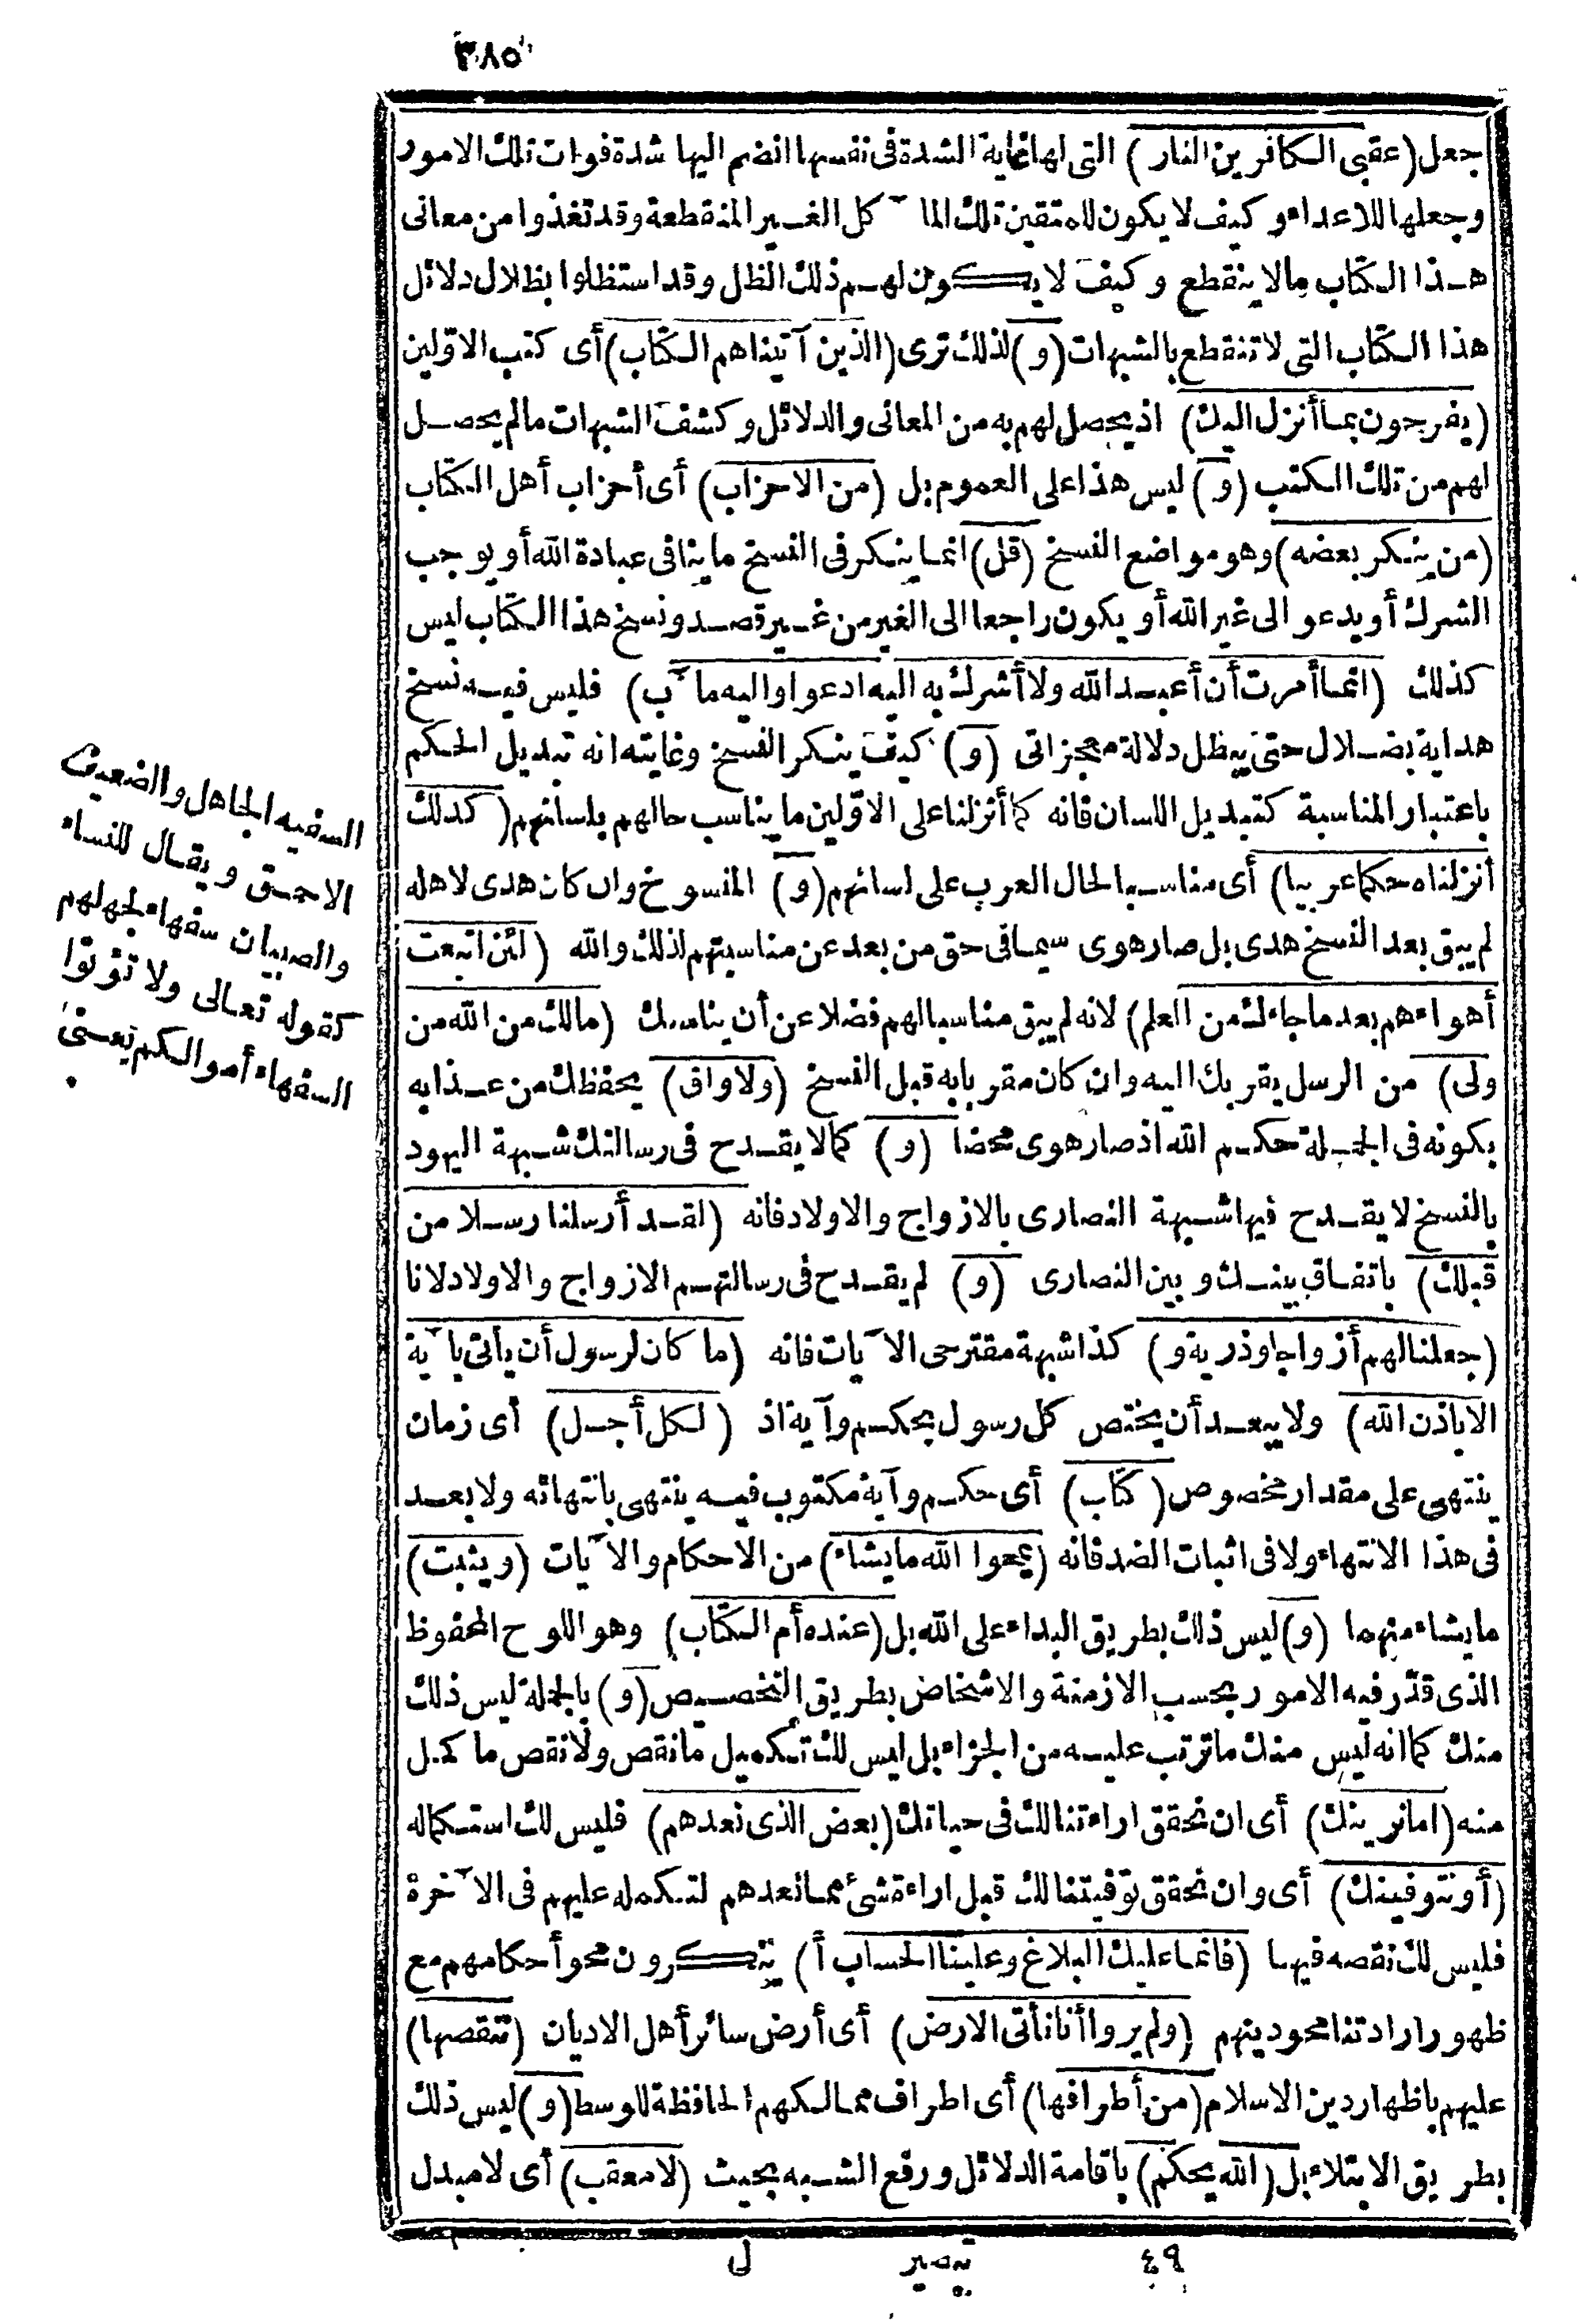 ٣٨٥
جعل (عقبى الكافرين النار) التى لها غاية الشدة فى نفسها انضم اليها شدة فوات تلك الامور
وجعلها للاعداء وكيف لا يكون للمتقين تلك المآ كل الغير المنقطعة وقد تغذوا من معانى
هذا الكتاب مالا ينقطع وكيف لا يكون لهم ذلك الظل وقد استظلوا بظلال دلائل
هذا الكتاب التى لا تنقطع بالشبهات (و) لذلك ترى (الذين آتيناهم الكتاب) أى كتب الاوّلين
(يفرحون بما أنزل اليك) اذ يحصل لهم به من المعانى والدلائل وكشف الشبهات مالم يحصل
لهم من تلك الكتب (و) ليس هذا على العموم بل (من الاحزاب) أى أحزاب أهل الكتاب
(من ينكر بعضه) وهو مواضع النسخ (قل) انما ينكر فى النسخ ما ينافى عبادة الله أو يوجب
الشرك أو يدعو الى غير الله أو يكون راجعا الى الغير من غير قصد ونسخ هذا الكتاب ليس
كذلك (انما أمرت أن أعبد الله ولا أشرك به اليه ادعوا واليه مآب) فليس فيه نسخ
هداية بضلال حتى يبطل دلالة معجزاتى (و) كيف ينكر النسخ وغايته انه تبديل الحكم
باعتبار المناسبة كتبديل اللسان فانه كما أنزلنا على الاوّلين ما يناسب حالهم بلسانهم (كذلك
أنزلناه حكما عربيا) أى مناسبا لحال العرب على لسانهم (و) المنسوخ وان كان هدى لاهله
لم يبق بعد النسخ هدى بل صار هوى سيما فى حق من بعد عن مناسبتهم لذلك والله (لئن اتبعت
أهواءهم بعد ما جاءك من العلم) لانه لم يبق مناسبا لهم فضلا عن أن يناسبك (مالك من الله من
ولى) من الرسل يقربك اليه وان كان مقربا به قبل النسخ (ولا واق) يحفظك من عذابه
بكونه فى الجملة حكم الله اذ صار هوى محضا (و) كما لا يقدح فى رسالتك شبهة اليهود
بالنسخ لا يقدح فيها شبهة النصارى بالازواج والاولاد فانه (لقد أرسلنا رسلا من
قبلك) باتفاق بينك وبين النصارى (و) لم يقدح فى رسالتهم الازواج والاولاد لانا
(جعلنا لهم أزواجا وذرية و) كذا شبهة مقترحى الآيات فانه (ما كان لرسول أن يأتى بآية
الا باذن الله) ولا يبعد أن يختص كل رسول بحكم وآية اذ (لكل أجل) أى زمان
ينتهى على مقدار مخصوص (كتاب) أى حكم وآية مكتوب فيه ينتهى بانتهائه ولا بعد
فى هذا الانتهاء ولا فى اثبات الضد فانه (يمحوا الله مايشاء) من الاحكام والآيات (ويثبت)
مايشاء منهما (و) ليس ذلك بطريق البداء على الله بل (عنده أم الكتاب) وهو اللوح المحفوظ
الذى قدّر فيه الامور بحسب الازمنة والاشخاص بطريق التخصيص (و) بالجملة ليس ذلك
منك كما انه ليس منك ما ترتب عليه من الجزاء بل ليس لك تكميل ما نقص ولا نقص ما كمل
منه (اما نرينك) أى ان نحقق اراءتنا لك فى حياتك (بعض الذى نعدهم) فليس لك استكماله
(أو نتوفينك) أى وان نحقق توفيتنا لك قبل اراءة شئ مما نعدهم لتكمله عليهم فى الآخرة
فليس لك نقصه فيها (فانما عليك البلاغ وعلينا الحساب أ) ينكرون محو أحكامهم مع
ظهور ارادتنا محو دينهم (ولم يروا أنا نأتى الارض) أى أرض سائر أهل الاديان (ننقصها)
عليهم باظهار دين الاسلام (من أطرافها) أى اطراف ممالكهم الحافظة للوسط (و) ليس ذلك
بطريق الابتلاء بل (الله يحكم) باقامة الدلائل ورفع الشبه بحيث (لا معقب) أى لا مبدل
السفيه الجاهل والضعيف
الاحمق ويقال للنساء
والصبيان سفهاء لجهلهم
كقوله تعالى ولا تؤتوا
السفهاء أموالكم يعنى
٤٩ تبصير ل